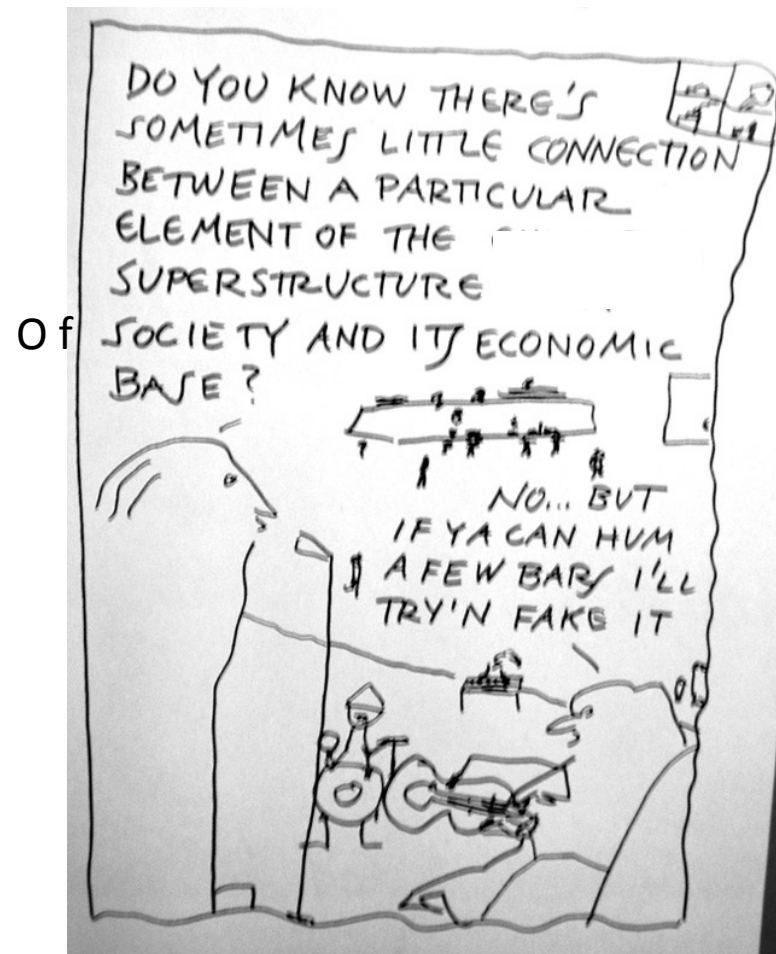 DO YOU KNOW THERE'S
SOMETIMES LITTLE CONNECTION
BETWEEN A PARTICULAR
ELEMENT OF THE
SUPERSTRUCTURE
Of SOCIETY AND ITS ECONOMIC
BASE?
NO... BUT
IF YA CAN HUM
A FEW BARS I'LL
TRY'N FAKE IT